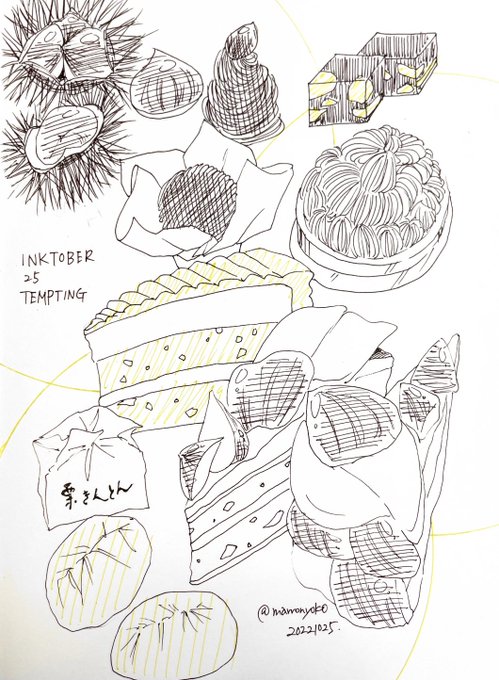 INKTOBER
25
TEMPTING
栗きんとん
@marronyoko
20221025.